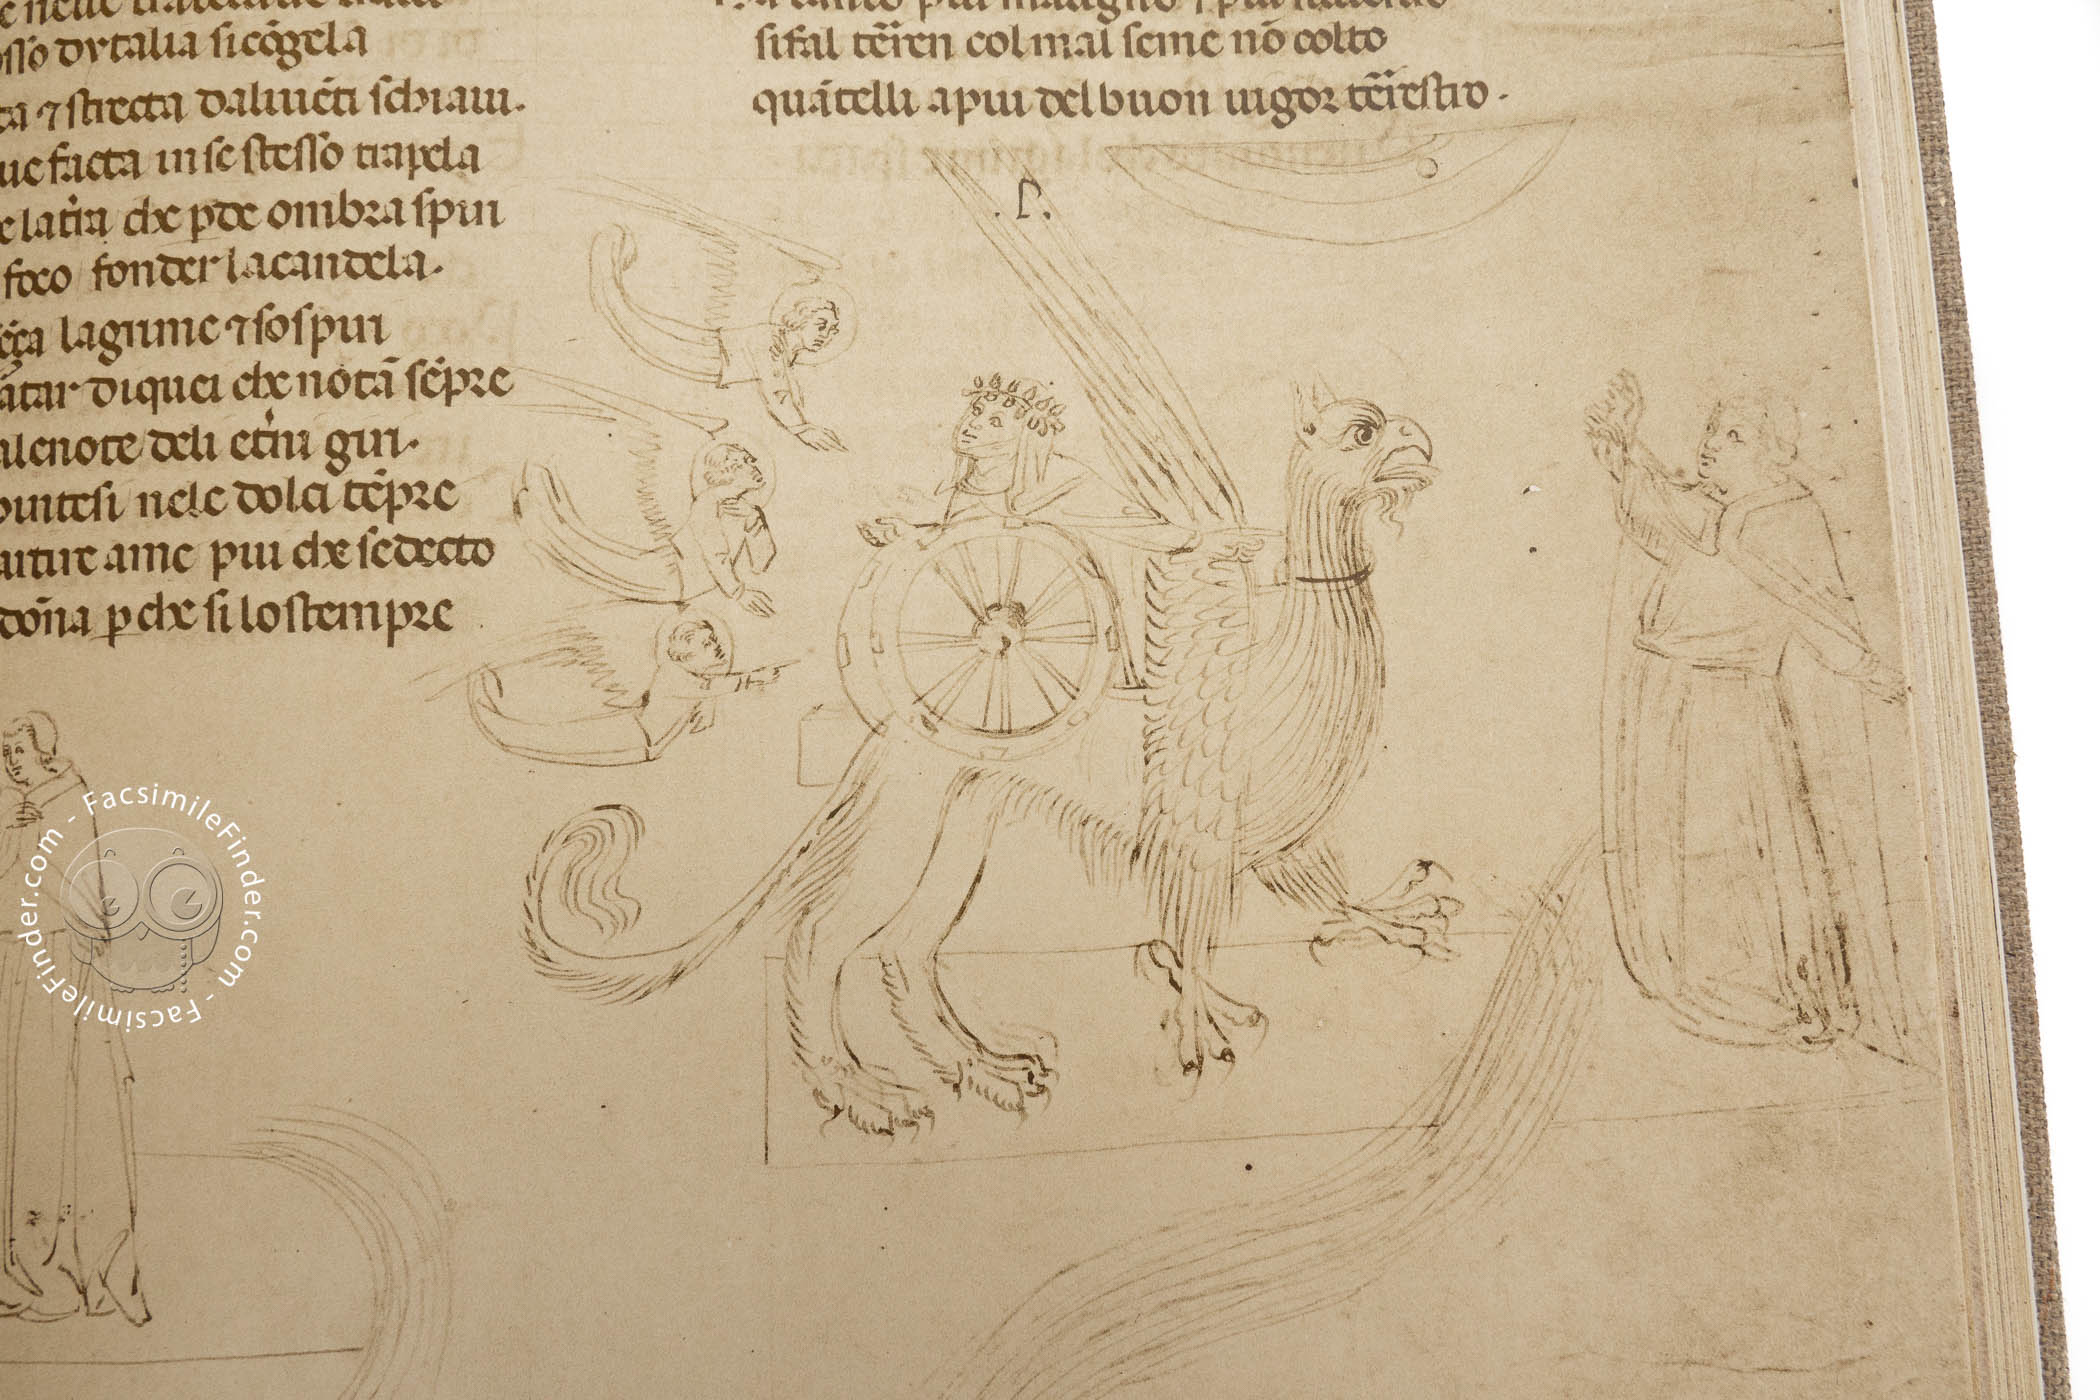 osso dytalia si cōgela
ta ⁊ strecta dalivēti schiaui.
ue facta in se stesso trapela
e latr̄ra che ꝑde ombra spiri
foco fonder la candela.
lagrime ⁊ sospiri
ātar diquei che notā sēpre
alenote deli etr̄ni giri.
ointesi nele dolci tēpre
atire ame piu che se decto
dōna ꝑche si lo stempre
sifal tēren col mal seme nō colto
quātelli a piu del buon uigor tērestro.
.P.
FacsimileFinder.com - FacsimileFinder.com -